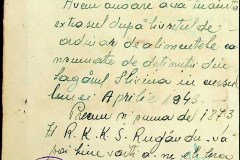 Avem onoare a vă înainta
extrasul după livretul de
ordinar de alimentele con
sumate de deținuții din
lagărul Slivina în cursul
lunei Aprilie 1943.
Precum și suma de 1373
R.K.K.S. Rugându-vă
să bine voiți a ne